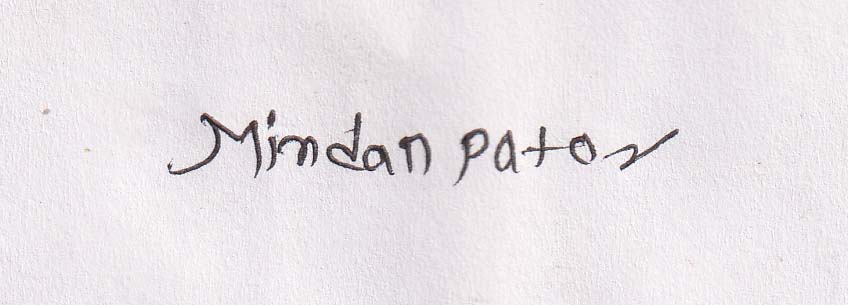 Mindan pator